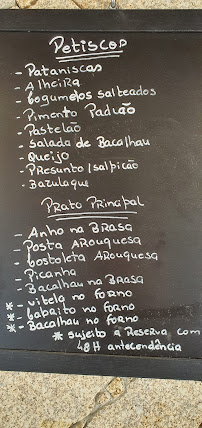 Petiscos
- Pataniscas
- Alheira
- Cogumelos salteados
- Pimento Padrão
- Pastelão
- Salada de Bacalhau
- Queijo
- Presunto/salpicão
- Bazulaque
Prato Principal
- Anho na Brasa
- Posta Arouquesa
- Costoleta Arouquesa
- Picanha
- Bacalhau na Brasa
* - vitela no forno
* - Cabrito no forno
* - Bacalhau no forno
* sujeito a Reserva com
48H antecondência